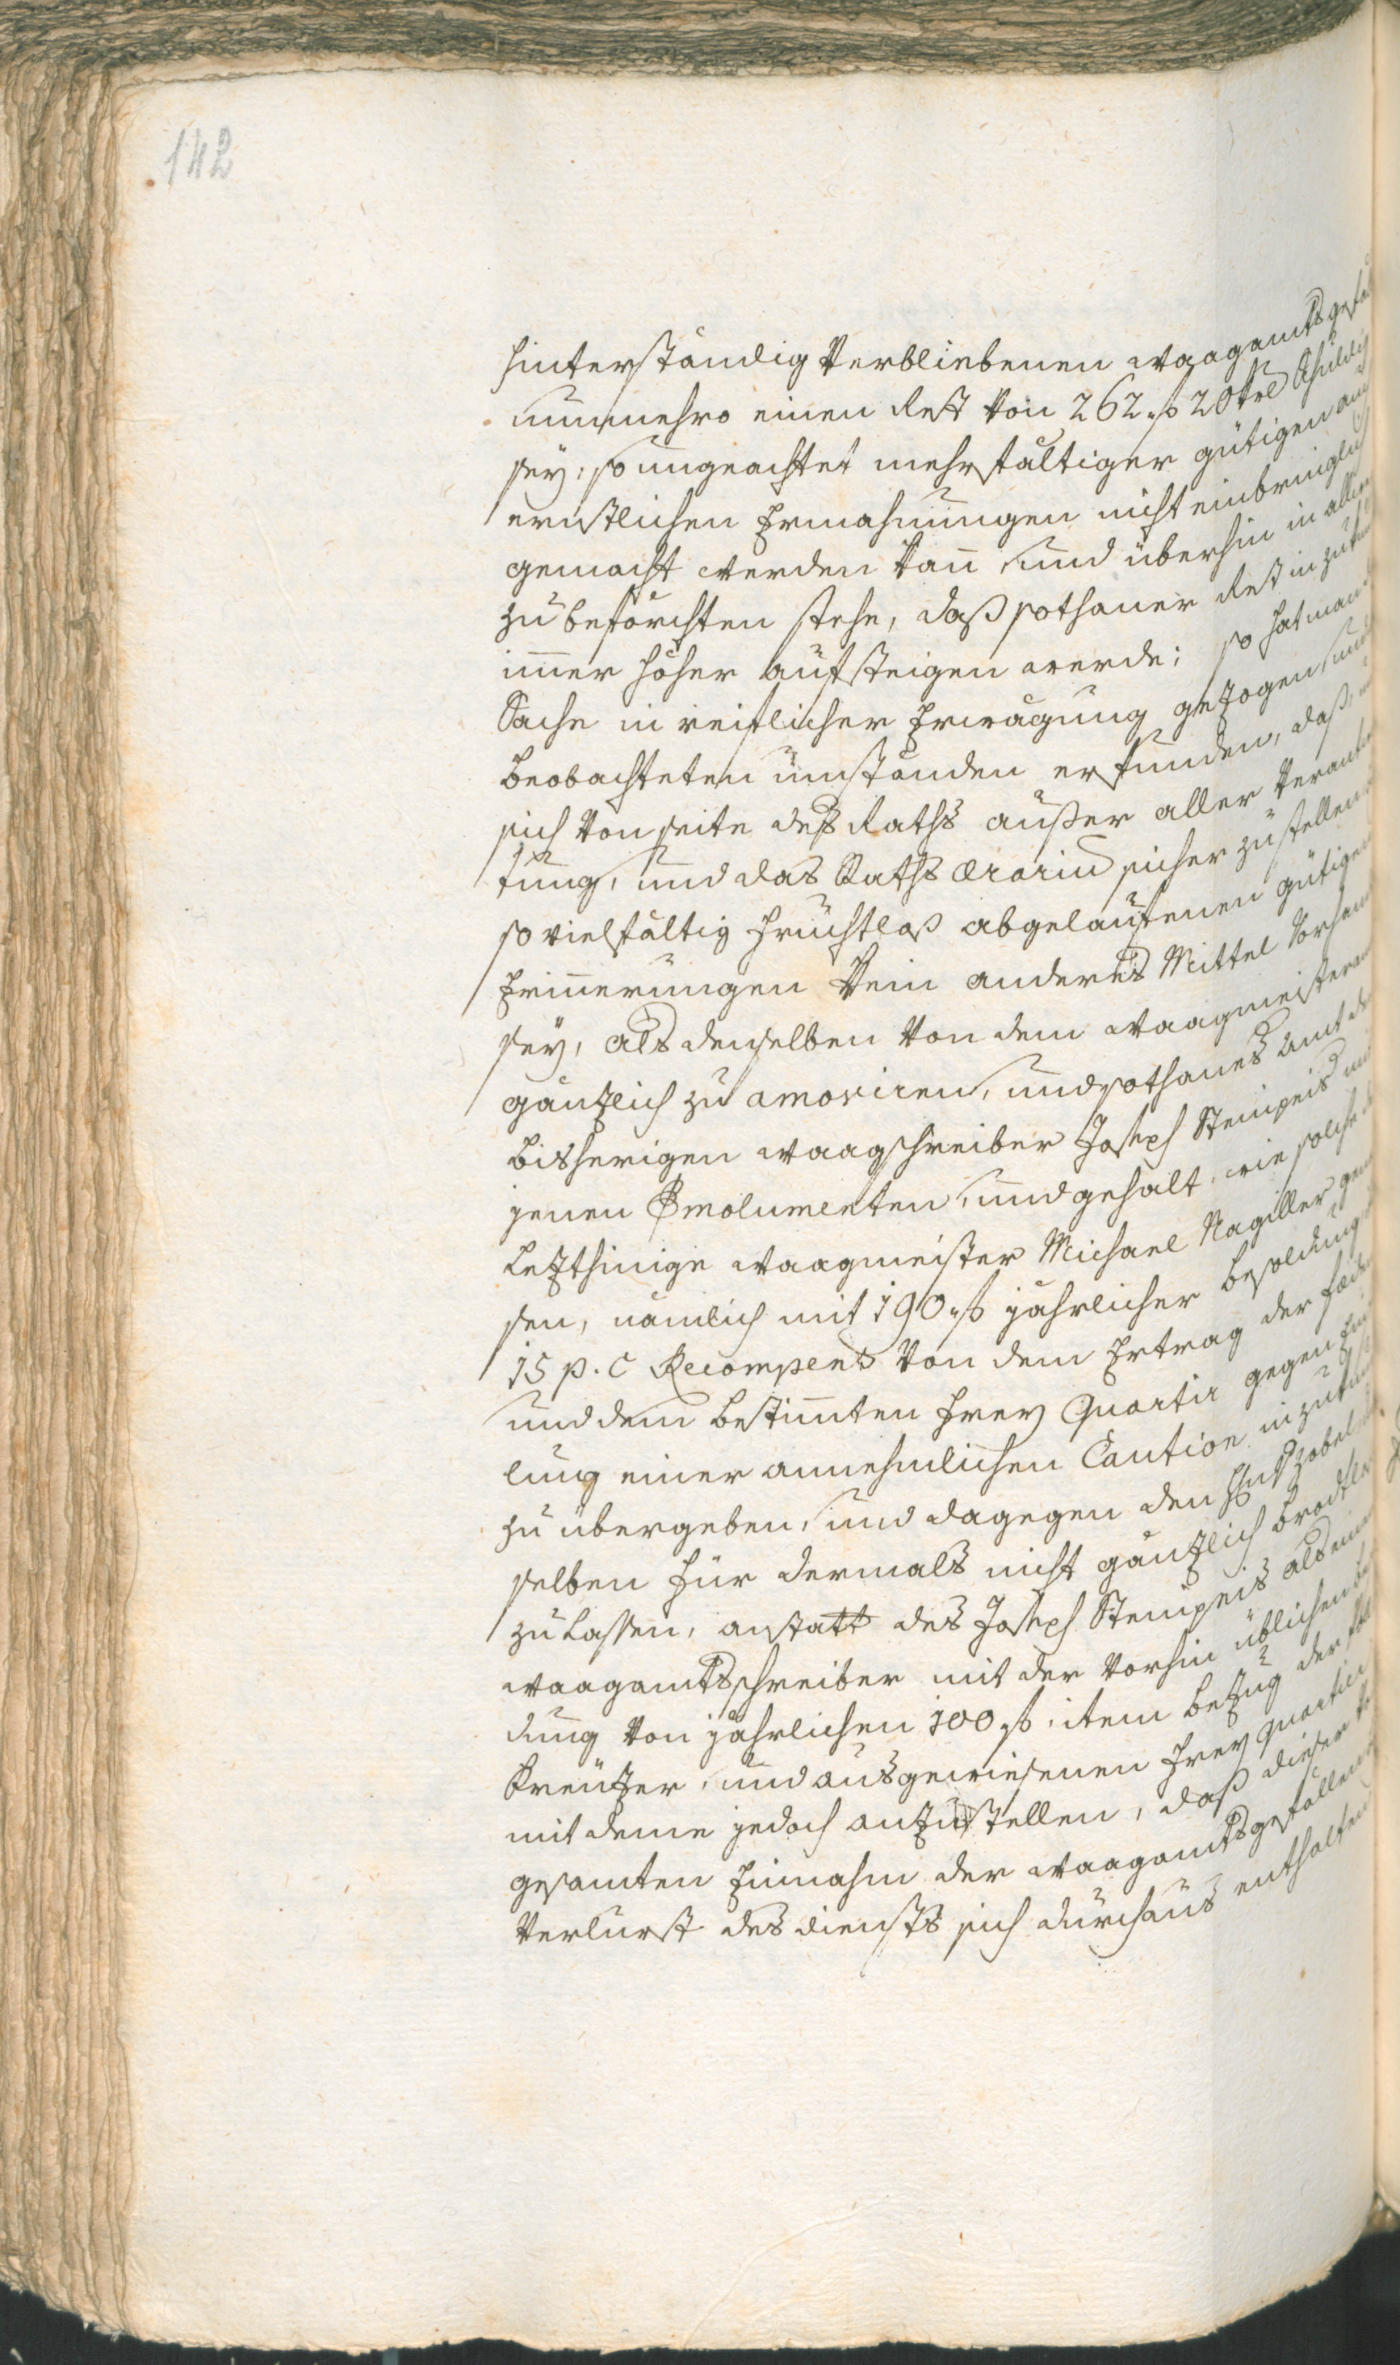 142
hinterständig verbliebenen waagamtsgefäl
nunmehro einen Rest von 262 fl 20 kr schuldig
seÿ, so ungeachtet mehrfältiger gütigen und
ernstlichen Ermahnungen nicht einbringlich
gemacht werden kan̄ und überhin in allem
zu beförchten stehe, daß sothaner Rest in zukun
im̄er höher aufsteigen werde; so hat man
Sache in reiflicher Erwägung gezogen, und
beobachteten umständen erfunden, daß,
sich von seite des Raths außer aller verantwor
tung, und das Raths Ærariū sicher zustellen
so vielfältig fruchtloß abgelaufenen gütigen
Erin̄erungen kein anderes Mittel vorhand
seÿ, als denselben von dem waagmeister am
gänzlich zu amoviren, und sothanes Amt de
bisherigen waagschreiber Joseph Stempeis mi
jenen Emolumenten, und gehalt, wie solche de
Lezthinige waagmeister Michael Nagiller geno
sen, nämlich mit 190 fl jährlicher besoldung
15 p. C Recompens von dem Ertrag der
und dem bestim̄ten freÿ Quartir gegen
lung einer annehmlichen Caution
zu übergeben, und dagegen den Zobel
selben für dermals nicht gänzlich brodtlos
zu lassen, anstatt des Joseph Stempeis als ein
waagamtsschreiber mit der vorhin üblichen
dung von jährlichen 100 fl, item bezug der
Kreuzer, und ausgewiesenen freÿ quartier
mit deme jedoch anzustellen, daß dieser
gesamten Einnahm der waagamtsgefällen
verlurst des diensts sich durchaus enthalten